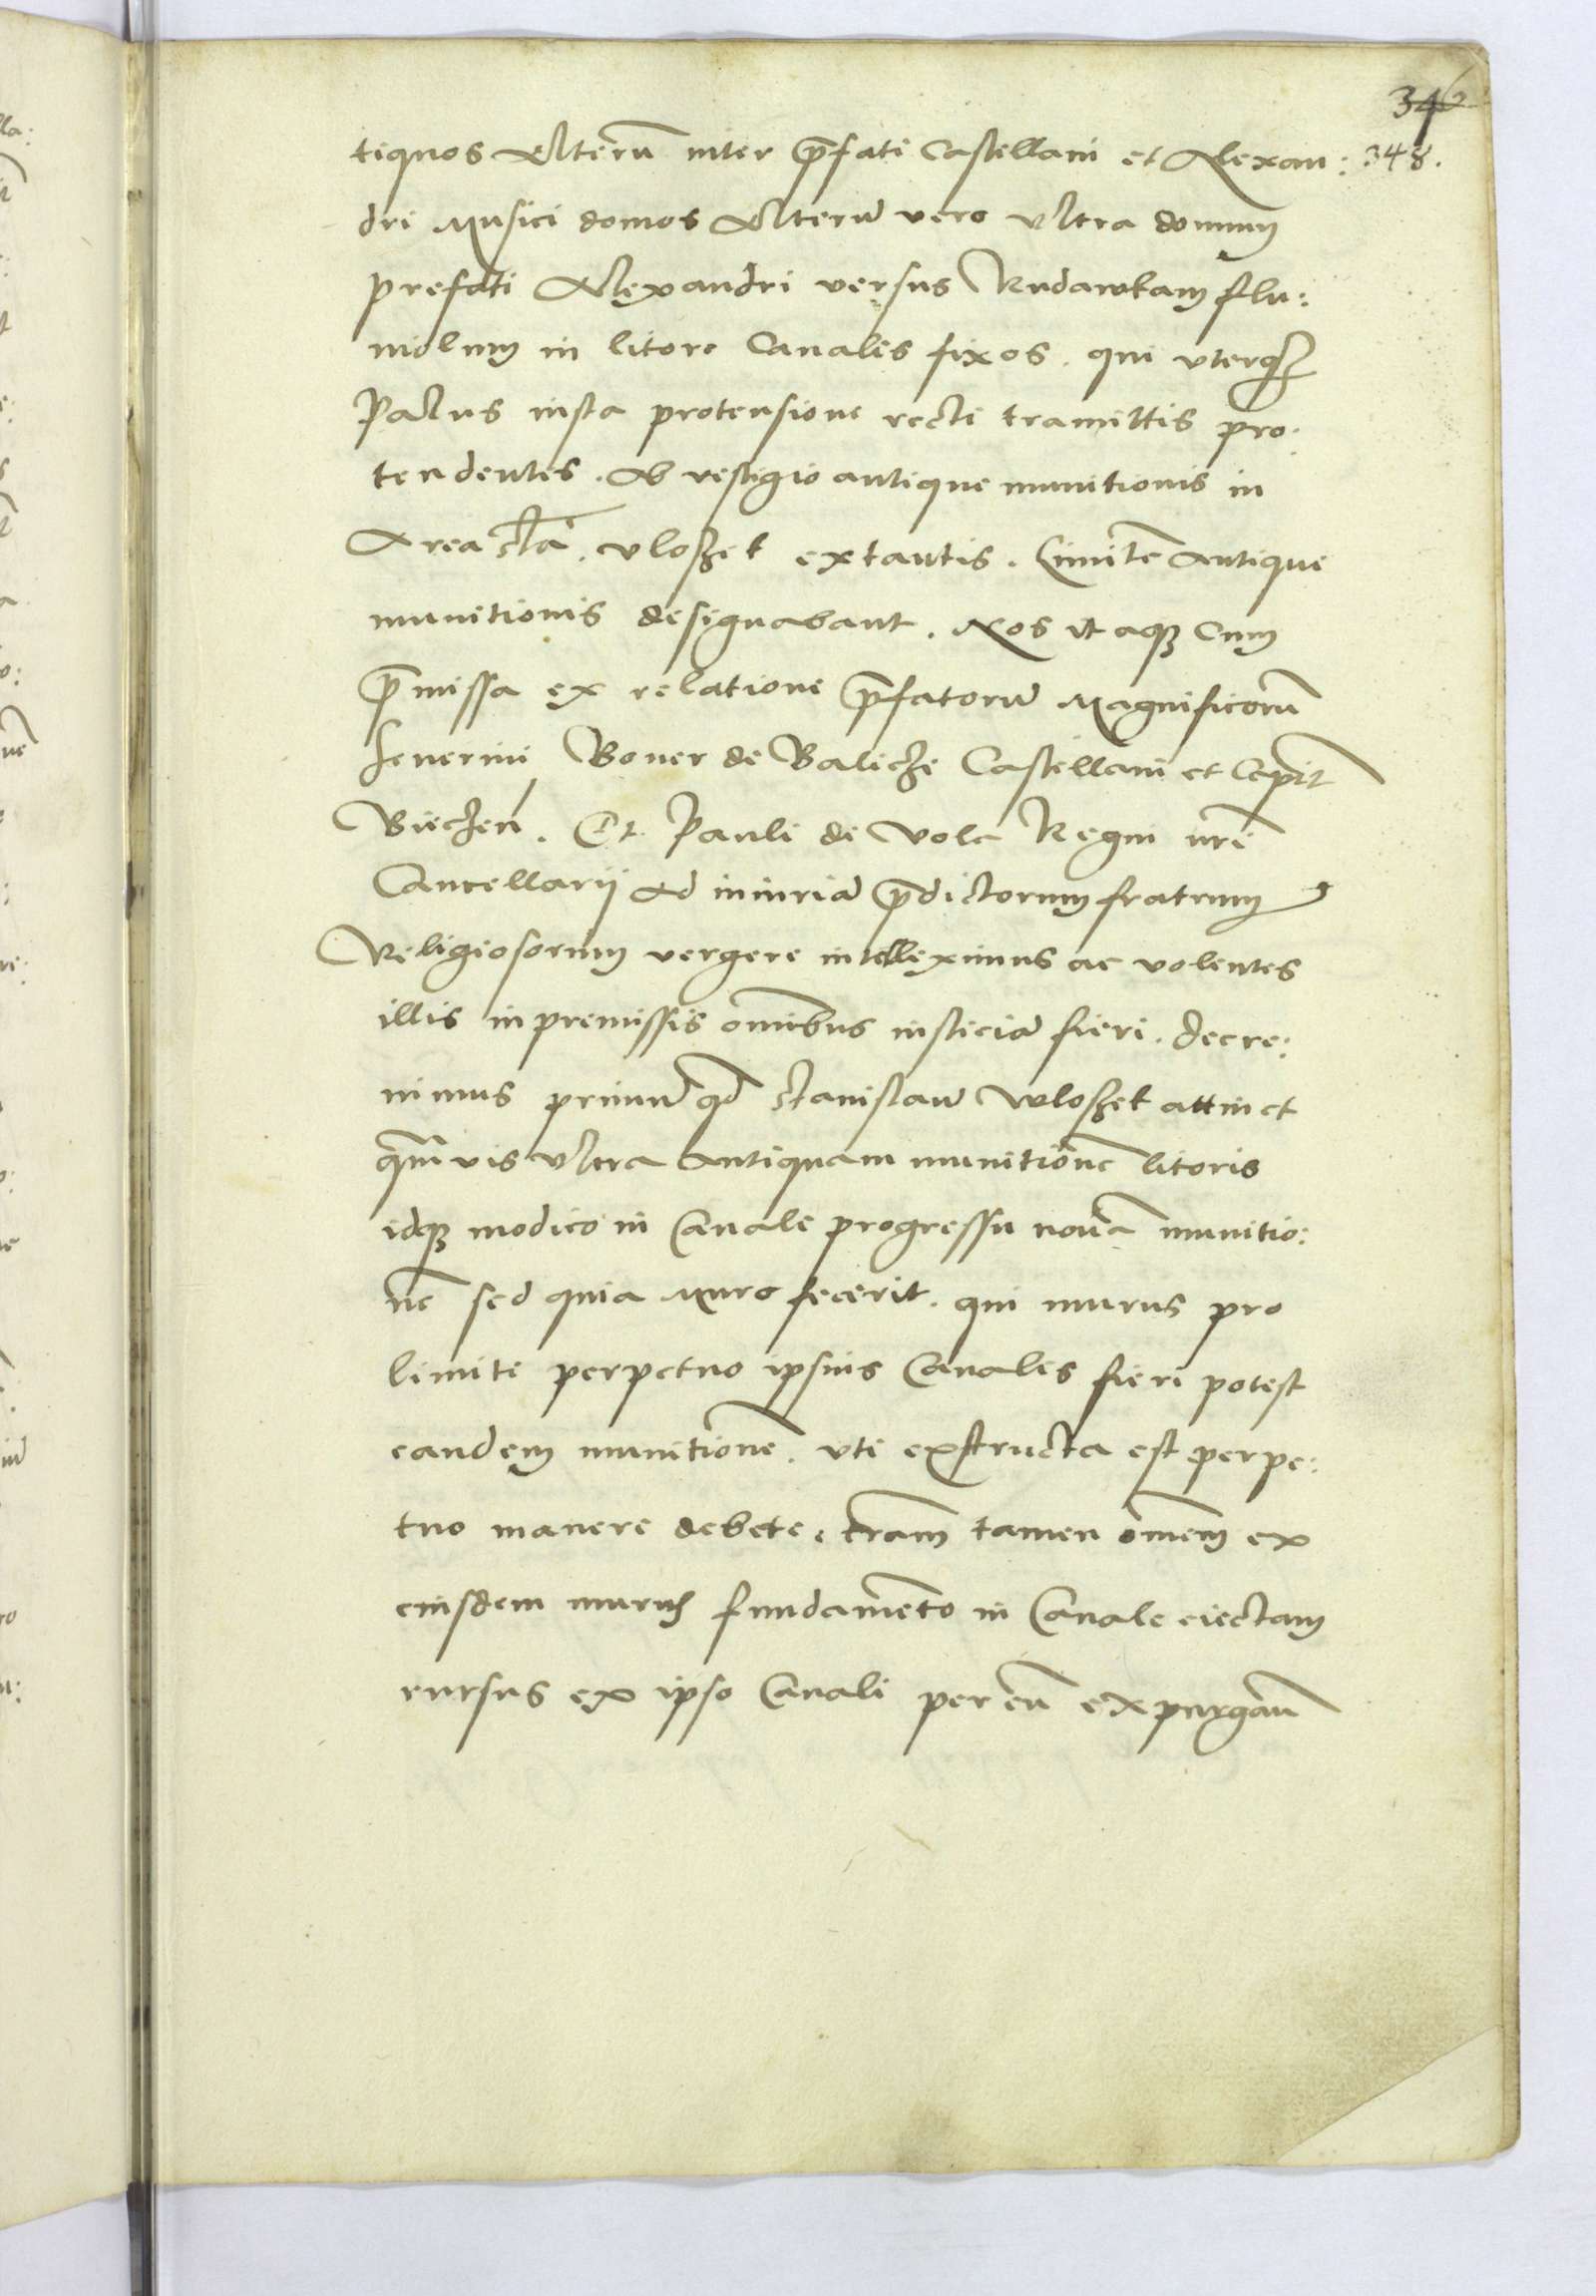 346
tiquos Alterũ inter p̃fati Castellani et Alexan: 348.
dri Musici domos Alterũ vero vltra domum
prefati Alexandri versus Rudawkam flu:
uiolum in litore Canalis fixos. qui vterqꝫ
Palus iusta protensione recti tramittis pro:
tendentes. Ab vestigio antique munitionis in
Area vloszek extantis. Limitẽ Antique
munitionis designabant. Nos itaqꝫ Cum
p̃missa ex relatione p̃fatorũ Magnificorũ
Seuerini Boner de Balicze Castellani et Capit̃
Bieczeñ. Et Pauli de Vola Regni nr̃i
Cancellarij Ad iniuriã p̃dictorum fratrum
Religiosorum vergere intelleximus ac volentes
illis in premissis om̃ibus iusticiã fieri. decre:
uimus primũ qd̃ Stanislaũ Wloszek attinet
qm̃uis vltra Antiquam munitionẽ litoris
idqꝫ modico in Canale progressu nouã munitio:
nẽ sed quia Muro fecerit. qui murus pro
limite perpetuo ipsius Canalis fieri potest
eandem munitionẽ. vti exstructa est perpe:
tuo manere debere. tr̃am tamen om̃em ex
eiusdem muri fundamẽto in Canale eiectam
rursus ex ipso Canali per eũ expurgañ